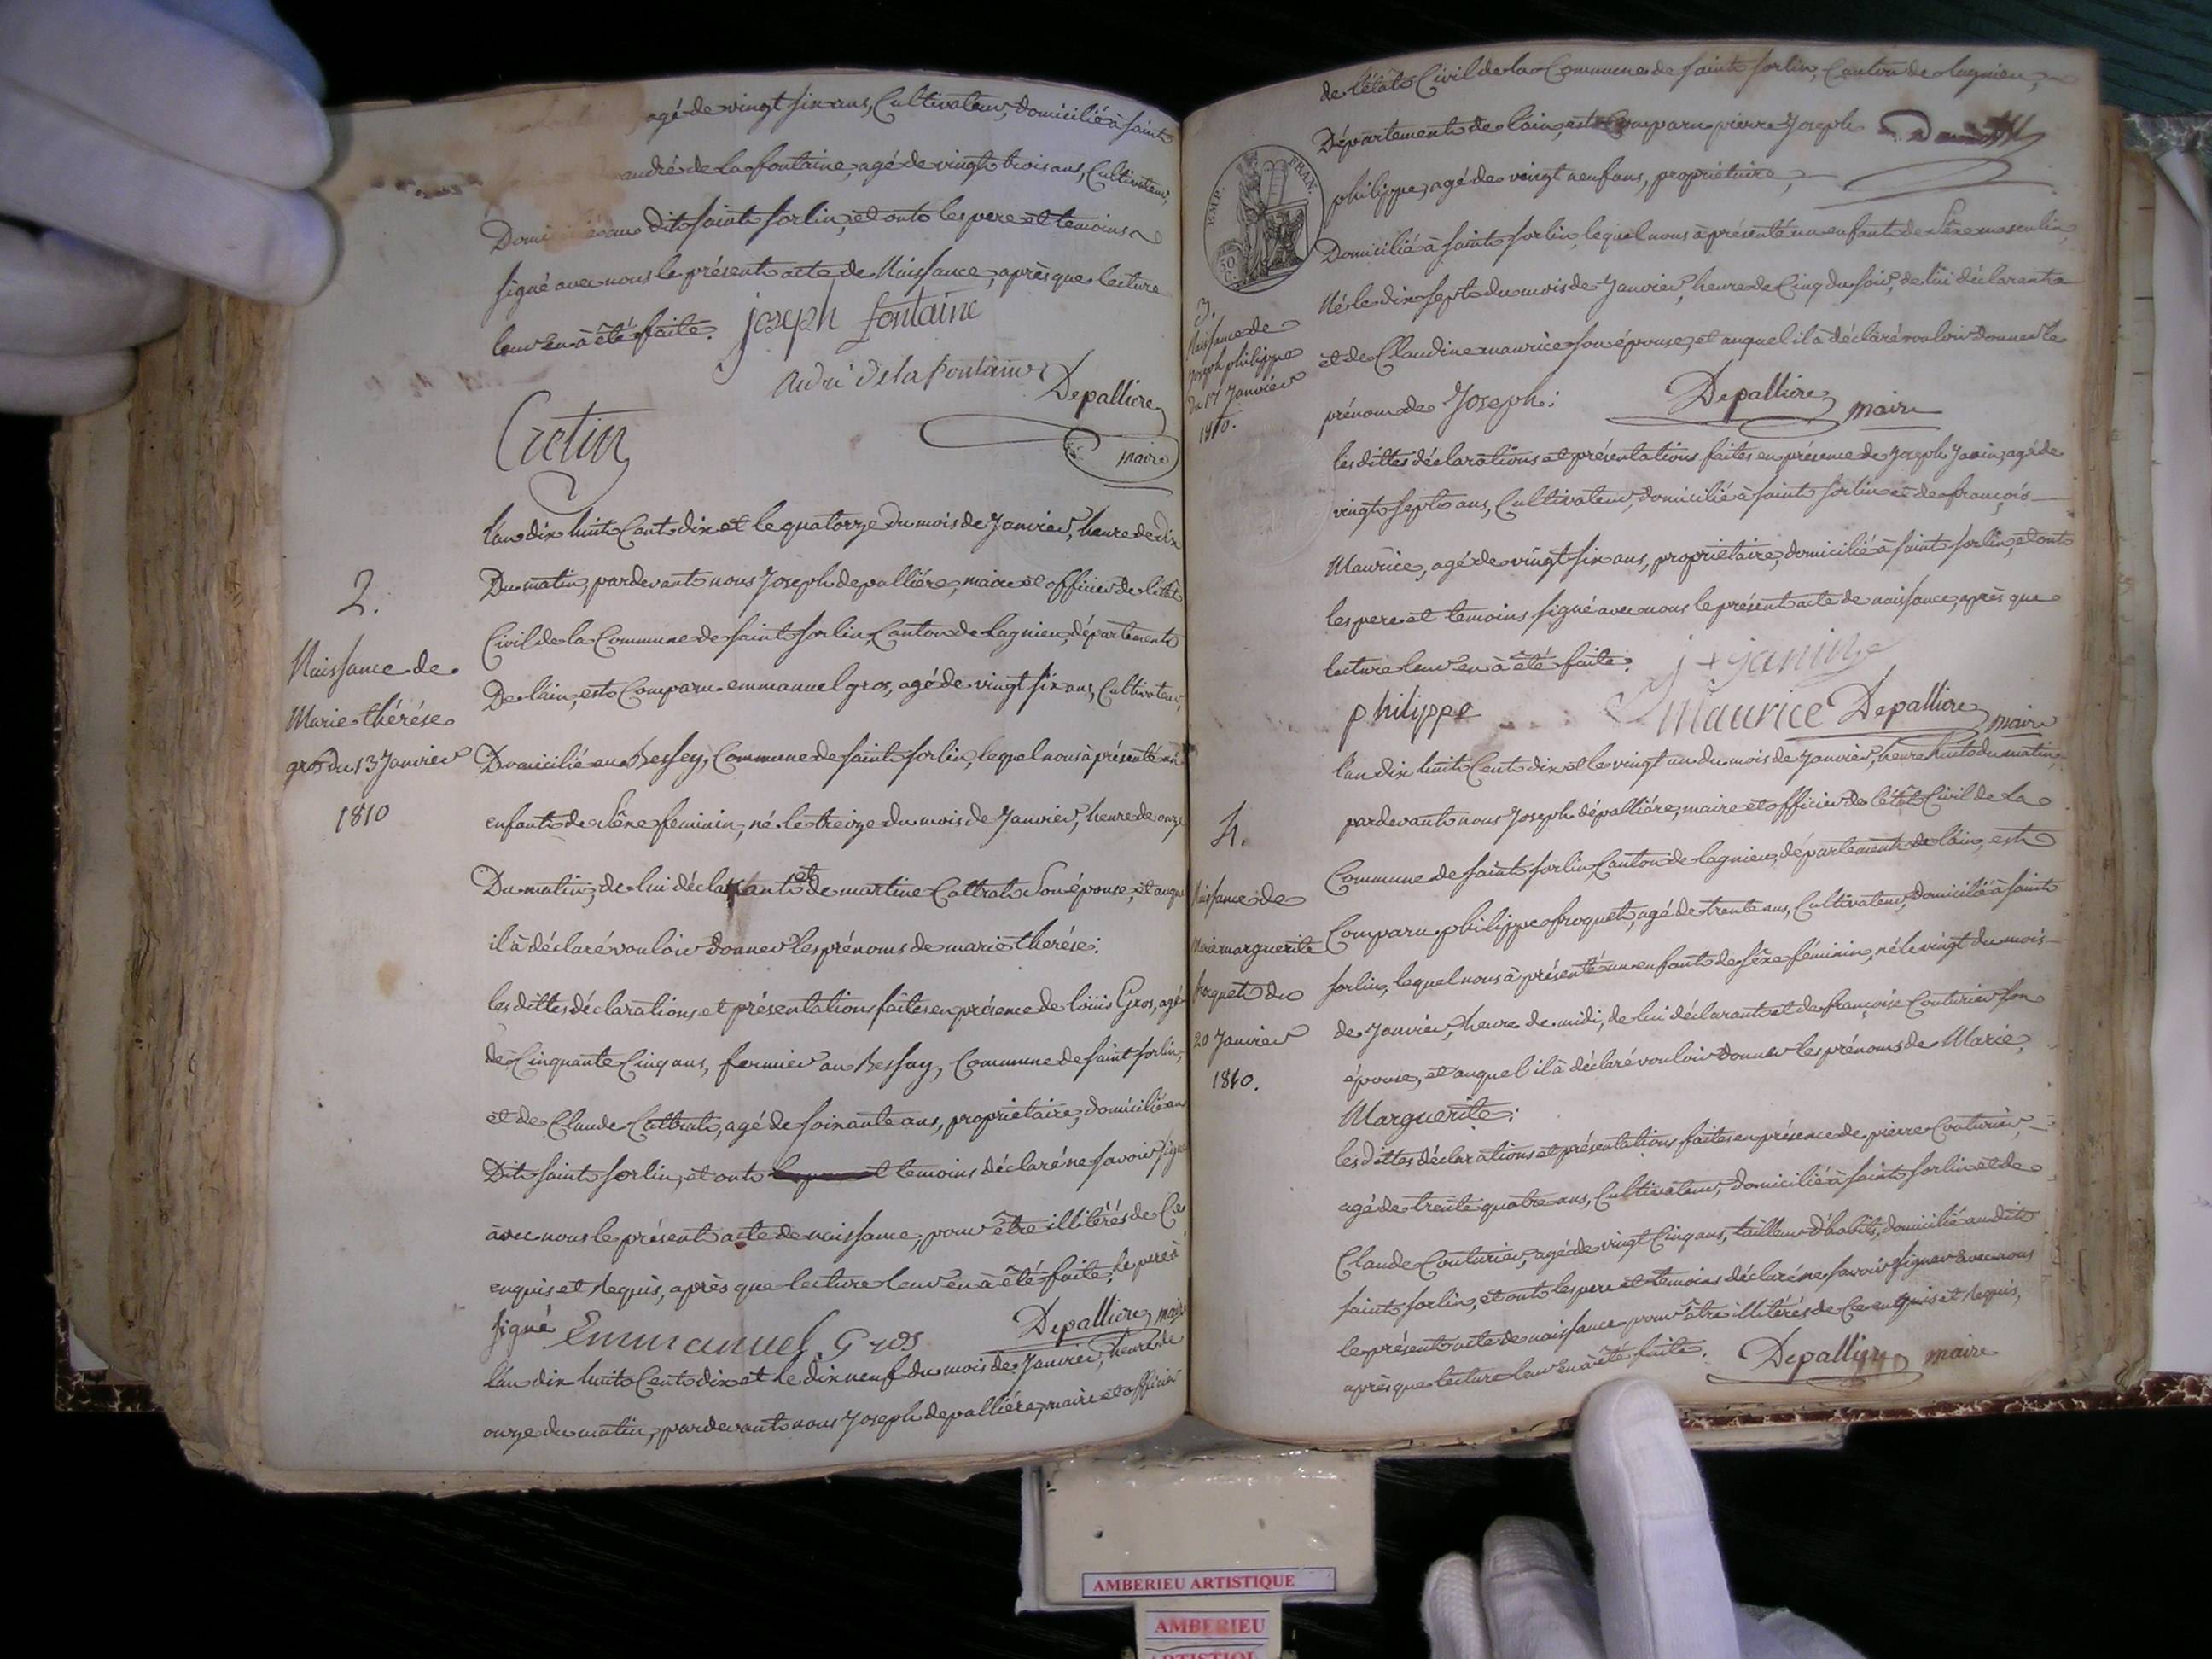 agé de vingt six ans, Cultivateur, domicilié à saint
andré de la fontaine, agé de vingt trois ans, Cultivateur,
au dit saint sorlin, et ont les pere et temoins
signé avec nous le présent acte de Naissance, après que lecture
leur en à été faite. joseph fontaine
andré De la fontaine Depalliere
Cretin maire
2.
Naissance de
Marie thérése
gros du 13 Janvier
1810
l'an dix huit Cent dix et le quatorze du mois de Janvier, heure de dix
Du matin, pardevant nous Joseph depalliére, maire et officier de l'état
Civil de la Commune de saint sorlin, Canton de Lagnieu, département
De l'ain, est Comparu emmanuel gros, agé de vingt six ans, Cultivateur,
Domicilié au Bessey, Commune de saint sorlin, lequel nous à présenté un
enfant de Séxe feminin, né le treize du mois de Janvier, heure de onze
Du matin, de lui déclarant et de martine Cattrat Son épouse, et auquel
il à déclaré vouloir donner les prénoms de marie thérése:
les dittes déclarations et présentations faites en présence de loüis Gros, agé
de Cinquante Cinq ans, fermier au Bessay, Commune de saint sorlin,
et de Claude Cattrat, agé de soixante ans, propriétaire, domicilié au
Dit saint sorlin, et ont temoins déclaré ne savoir signer
avec nous le présent acte de naissance, pour être illitérés de Ce
enquis et Requis, après que lecture leur en à été faite. le pere à
signé Emmanuel Gros Depalliere maire
l'an dix huit Cent dix et le dix neuf du mois de Janvier, heure de
onze du matin, pardevant nous Joseph depalliére, maire et officier
de l'état Civil de la Commune de saint sorlin, Canton de Lagnieu,
Département de l'ain, est Comparu pierre Joseph
philippe, agé de vingt neuf ans, propriétaire,
Domicilié à saint sorlin, lequel nous à présenté un enfant de Séxe masculin,
Né le dix sept du mois de Janvier, heure de Cinq du soir, de lui déclarant
et de Claudine maurice son épouse, et auquel il à déclaré vouloir donner le
prénom de Joseph: Depalliere maire
EMP. FRAN.
50 C.
3.
Naissance de
Joseph philippe
du 17 Janvier
1810.
les dittes déclarations et présentations faites en présence de Joseph Janin, agé de
vingt sept ans, Cultivateur, domicilié à saint sorlin et de françois
Maurice, agé de vingt six ans, propriétaire, domicilié à saint sorlin, et ont
les pere et temoins signé avec nous le présent acte de naissance, après que
lecture leur en à été faite. j janin
philippe Maurice Depalliere maire
4.
Naissance de
Marie marguerite
froquet du
20 Janvier
1810.
l'an dix huit Cent dix et le vingt un du mois de Janvier, heure huit du matin,
pardevant nous Joseph dépalliére, maire et officier de l'état Civil de la
Commune de saint sorlin Canton de Lagnieu, département de l'ain, est
Comparu philippe froquet, agé de trente ans, Cultivateur, domicilié à saint
sorlin, lequel nous à présenté un enfant de séxe féminin, né le vingt du mois
de Janvier, heure de midi, de lui déclarant et de françoise Couturier son
épouse, et auquel il à déclaré vouloir donner les prénoms de Marie,
Marguerite:
les dittes déclarations et présentations faites en présence de pierre Couturier,
agé de trente quatre ans, Cultivateur, domicilié à saint sorlin et de
Claude Couturier, agé de vingt Cinq ans, tailleur d'habits, domicilié au dit
saint sorlin, et ont les pere et temoins déclaré ne savoir signer avec nous
le présent acte de naissance pour être illitérés de Ce enquis et Requis,
après que lecture leur en à été faite. Depalliere maire
AMBERIEU ARTISTIQUE
AMBERIEU
ARTISTIQUE